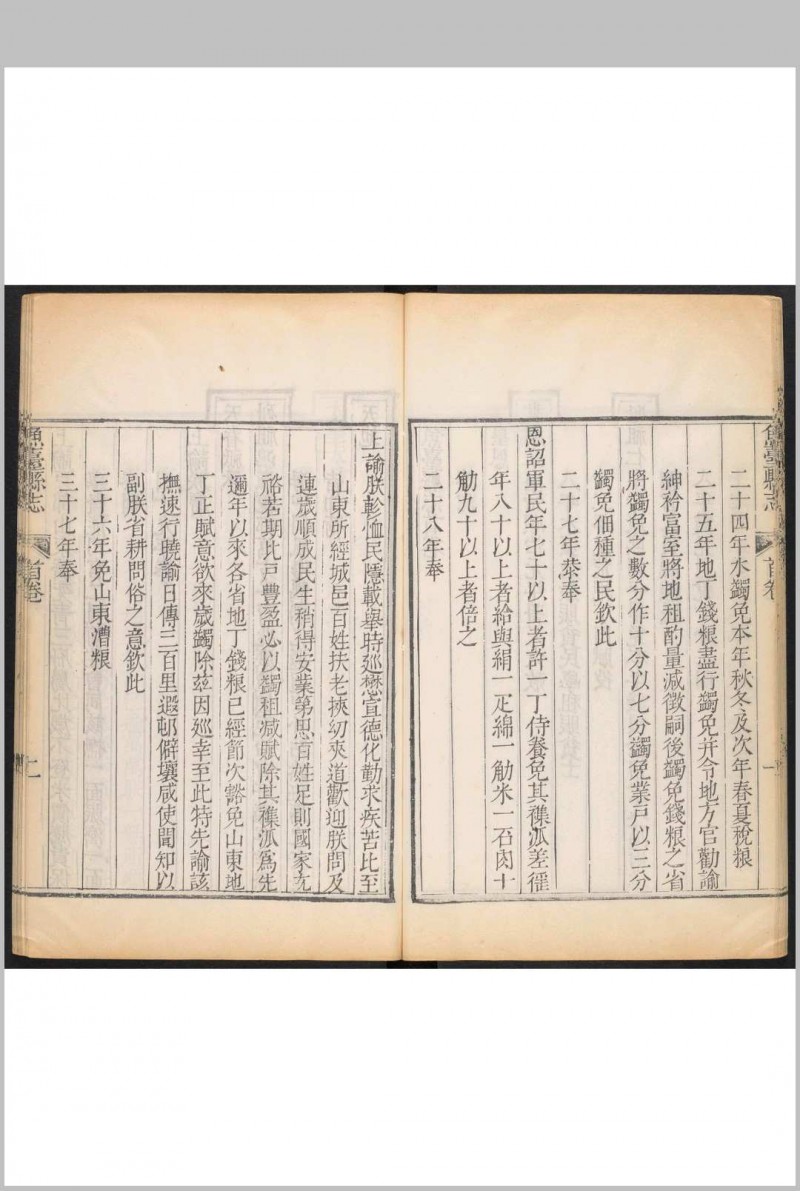 魚臺縣志
首卷
一
二十四年水蠲免本年秋冬及次年春夏稅粮
二十五年地丁錢粮盡行蠲免幷令地方官勸諭
紳衿富室將地租酌量減徵嗣後蠲免錢粮之省
將蠲免之數分作十分以七分蠲免業戶以三分
蠲免佃種之民欽此
二十七年恭奉
恩詔軍民年七十以上者許一丁侍養免其雜派差徭
年八十以上者給與絹一疋綿一觔米一石肉十
觔九十以上者倍之
二十八年奉
上諭朕軫恤民隱載舉時廵懋宣德化勤求疾苦比至
山東所經城邑百姓扶老挾幼夾道歡迎朕問及
連歲順成民生稍得安業第思百姓足則國家充
裕若期比戶豐盈必以蠲租减賦除其雜派爲先
邇年以來各省地丁錢粮已經節次豁免山東地
丁正賦意欲來歲蠲除茲因廵幸至此特先諭該
撫速行曉諭日傳三百里遐邨僻壤咸使聞知以
副朕省耕問俗之意欽此
三十六年免山東漕粮
三十七年奉
魚臺縣志
首卷
二